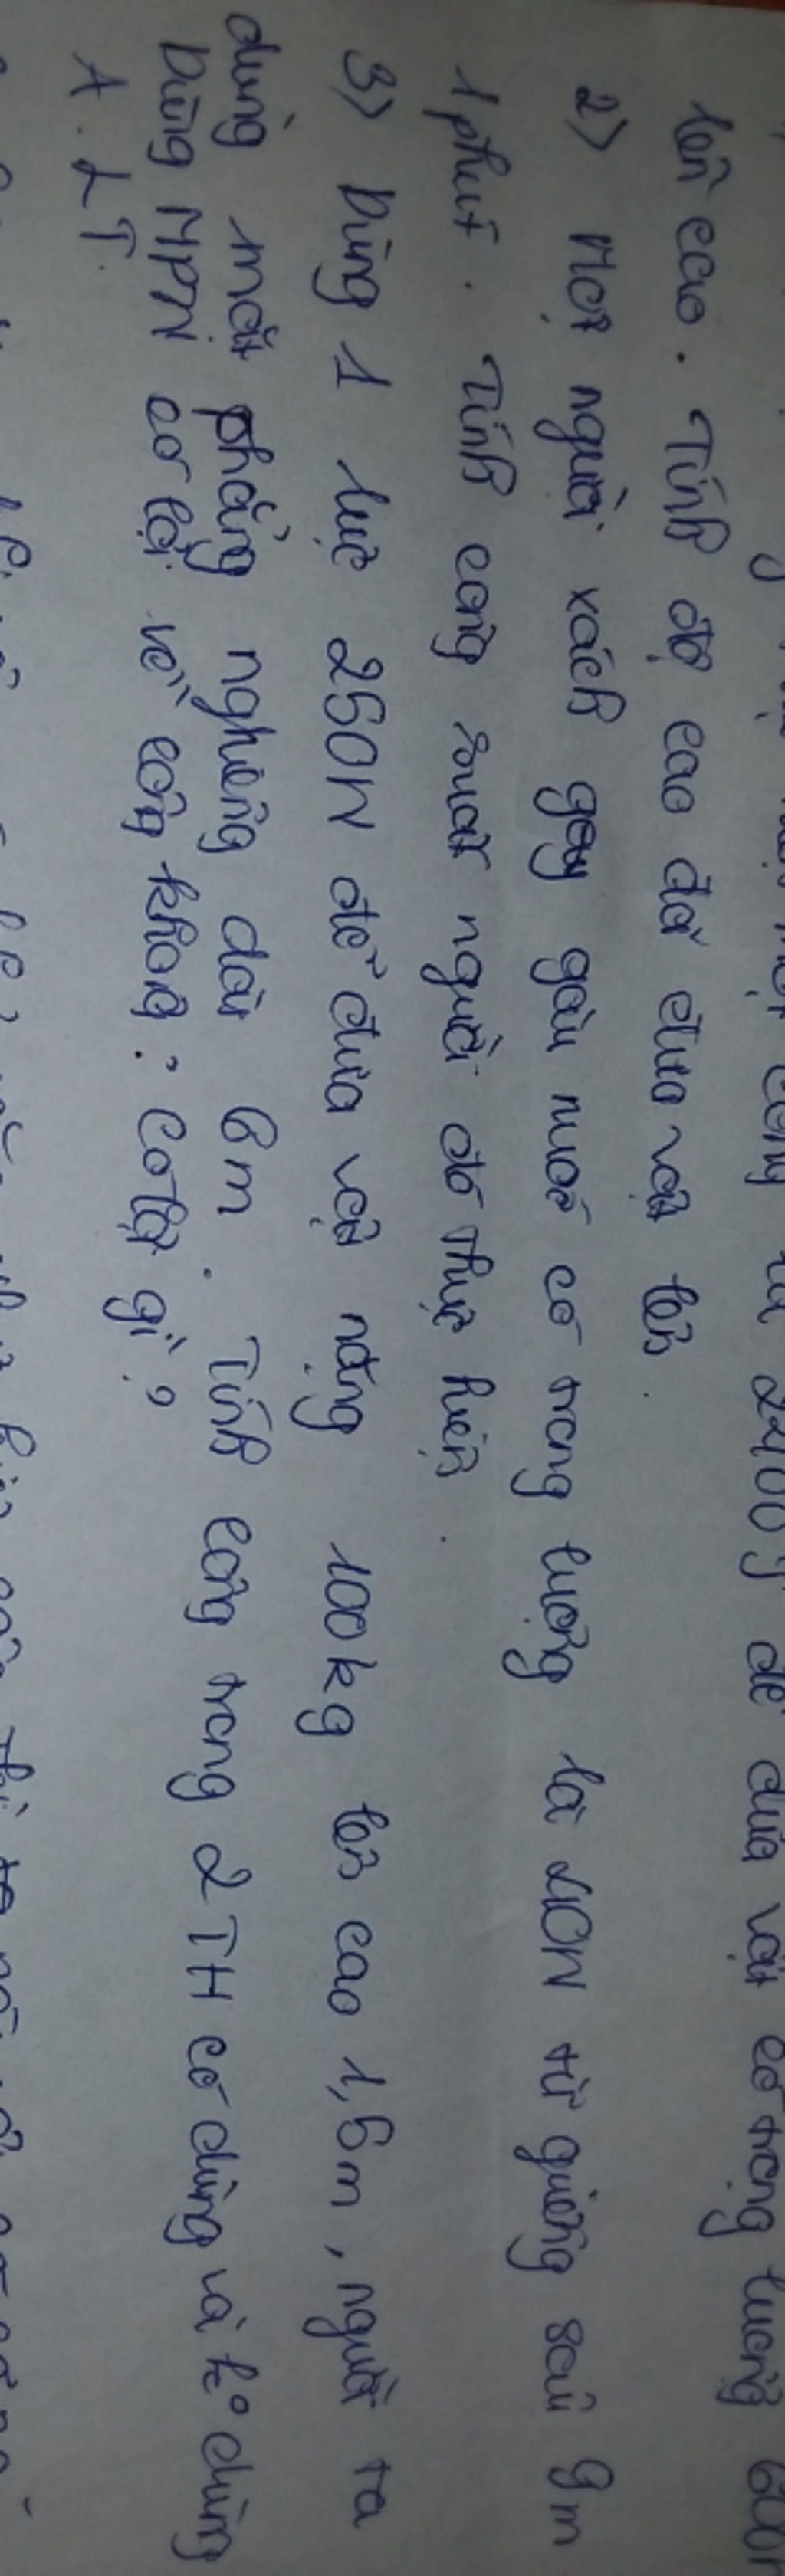 một công là 2400J để đưa vật có trọng lượng 600
lên cao. Tính độ cao đã đưa vật lên.
2> Một người xách gày gàu nước có trọng lượng là 40N từ giếng sâu 9m
1 phút. Tính công suất người đó thực hiện.
3> Dùng 1 lực 250N để đưa vật nặng 100kg lên cao 1,5m, người ta
dùng mặt phẳng nghiêng dài 6m. Tính công trong 2 TH có dùng và ko dùng
Dùng MPN có lợi về công không? Có lợi gì?
A. LT.